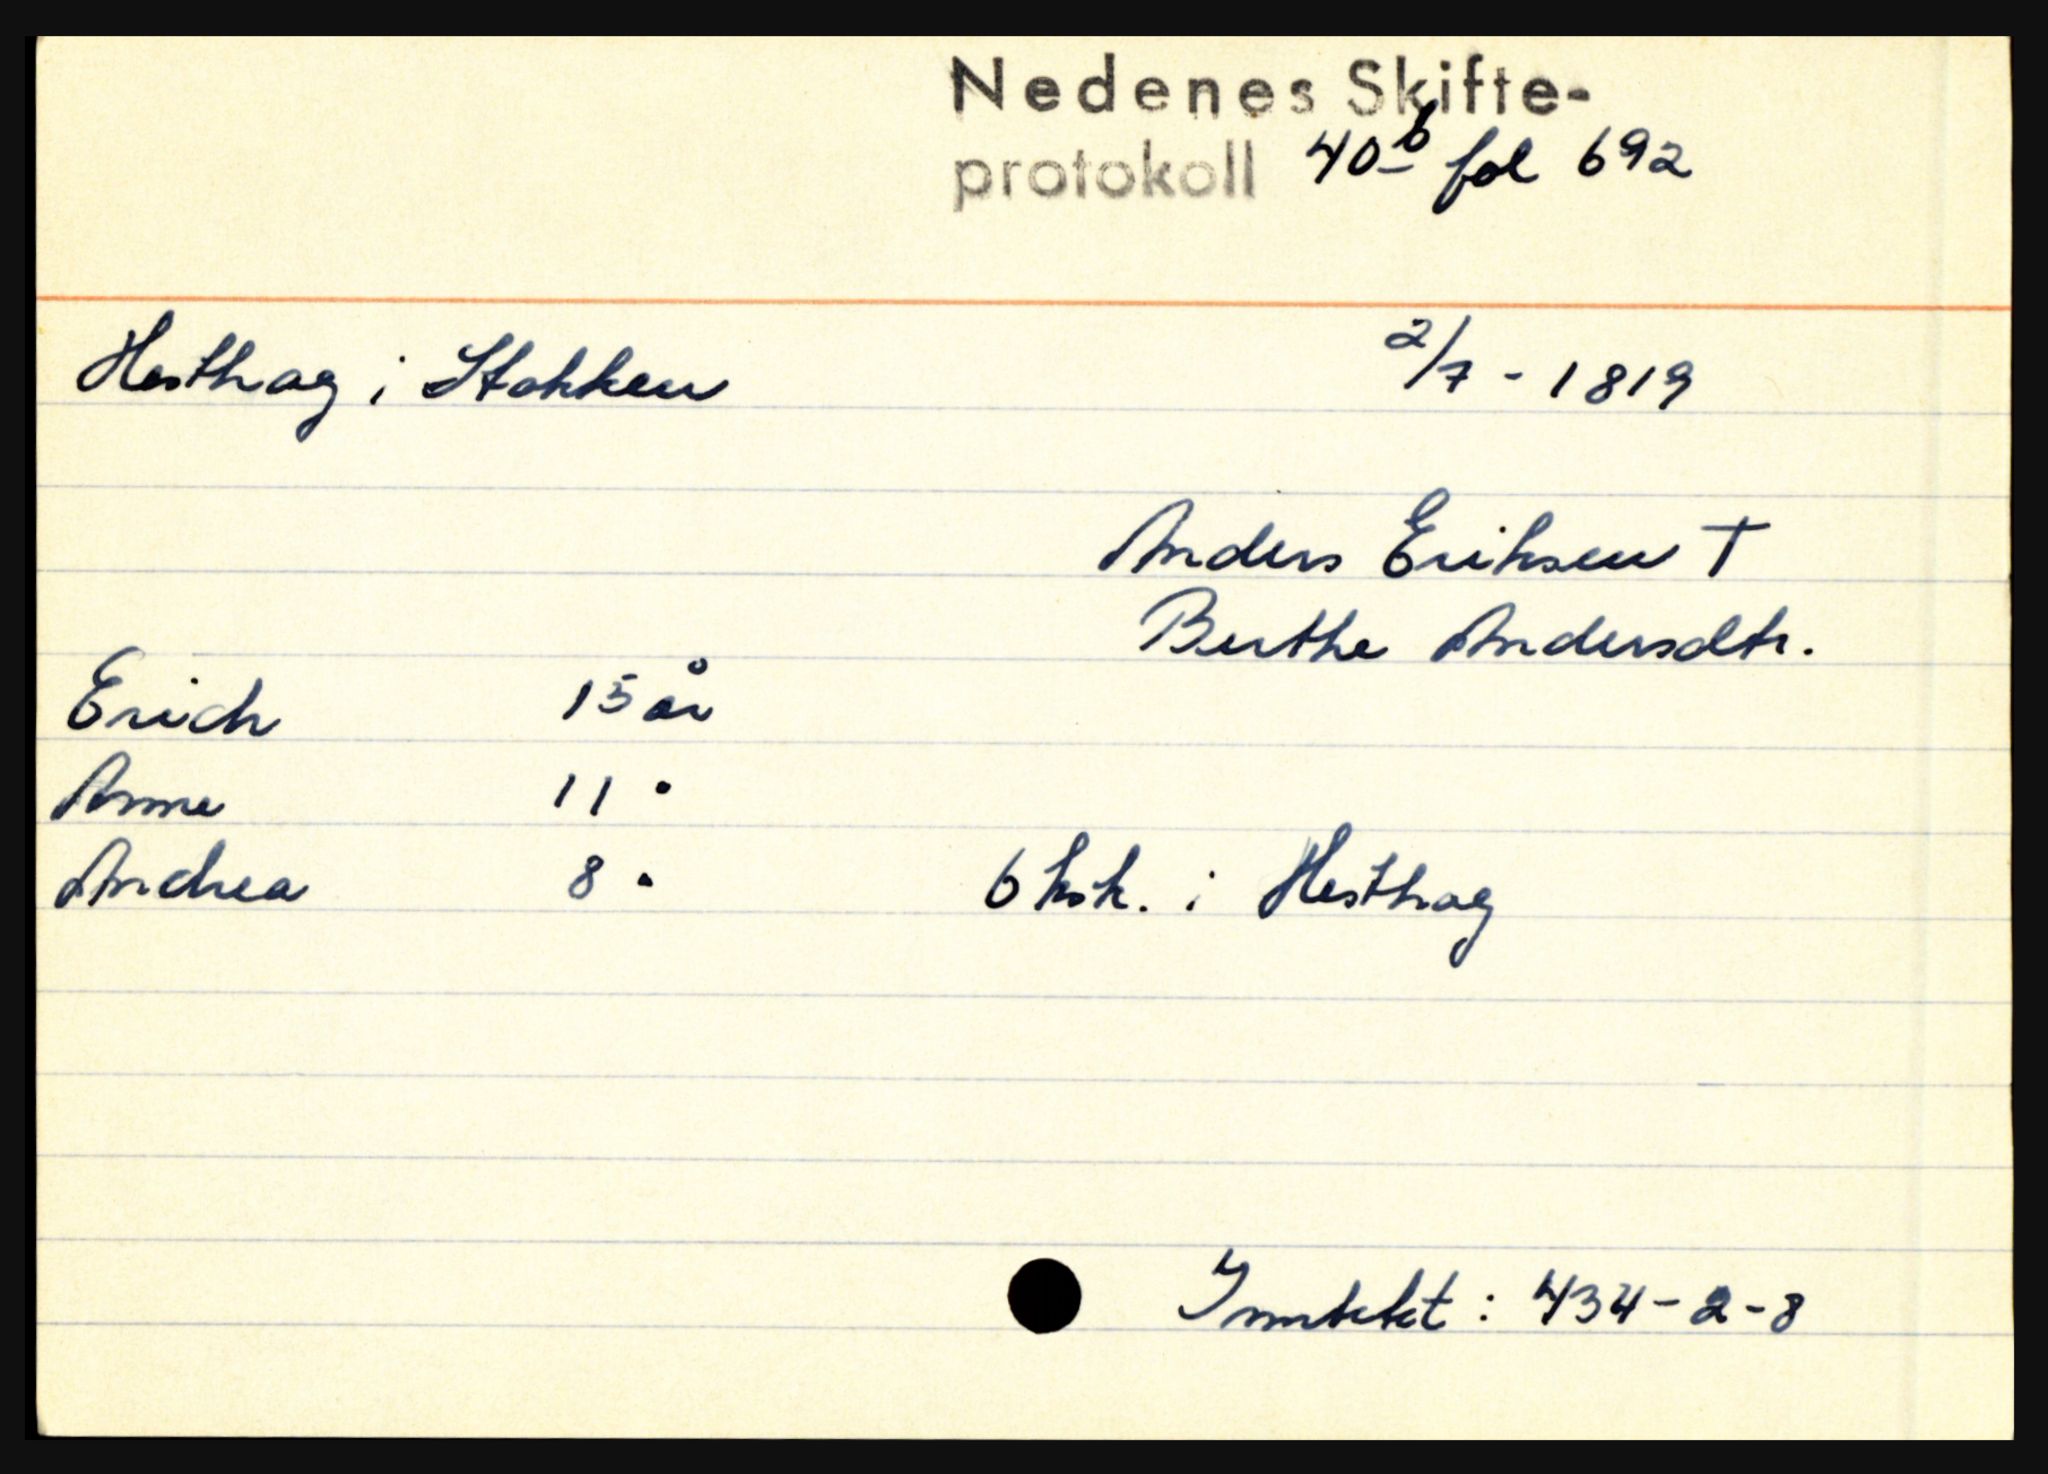 Nedenes Skifte-
protokoll 40b fol 692
Hesthag i Stokken 2/7 - 1819
Anders Eriksen †
Berthe Andersdtr.
Erich 15 år
Anne 11 "
Andrea 8 " 6 ksk. i Hesthag
Inntekt: 434-2-8